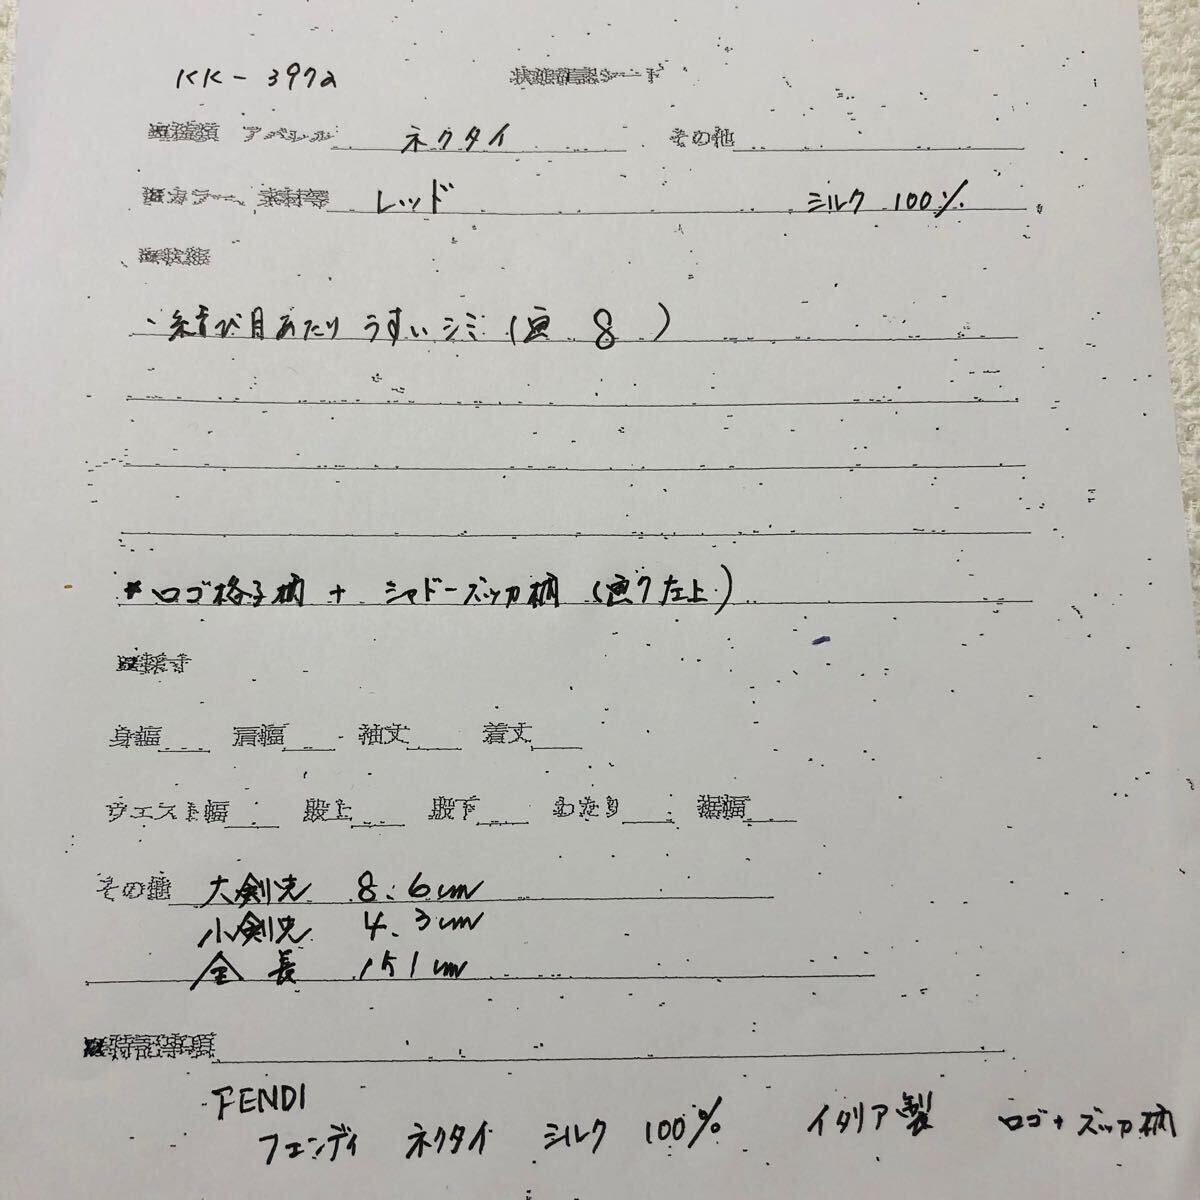 KK-397a 状態確認シート
アパレル ネクタイ その他
カラー、素材等 レッド シルク 100%
状態
・結び目あたり うすいシミ (画 8 )
*ロゴ格子柄 + シャドーズッカ柄 (画7左上)
採寸
身幅 肩幅 袖丈 着丈
ウエスト幅 股上 股下 わたり 裾幅
その他 大剣先 8.6cm
小剣先 4.3cm
全長 151cm
特記事項
FENDI
フェンディ ネクタイ シルク 100% イタリア製 ロゴ+ズッカ柄